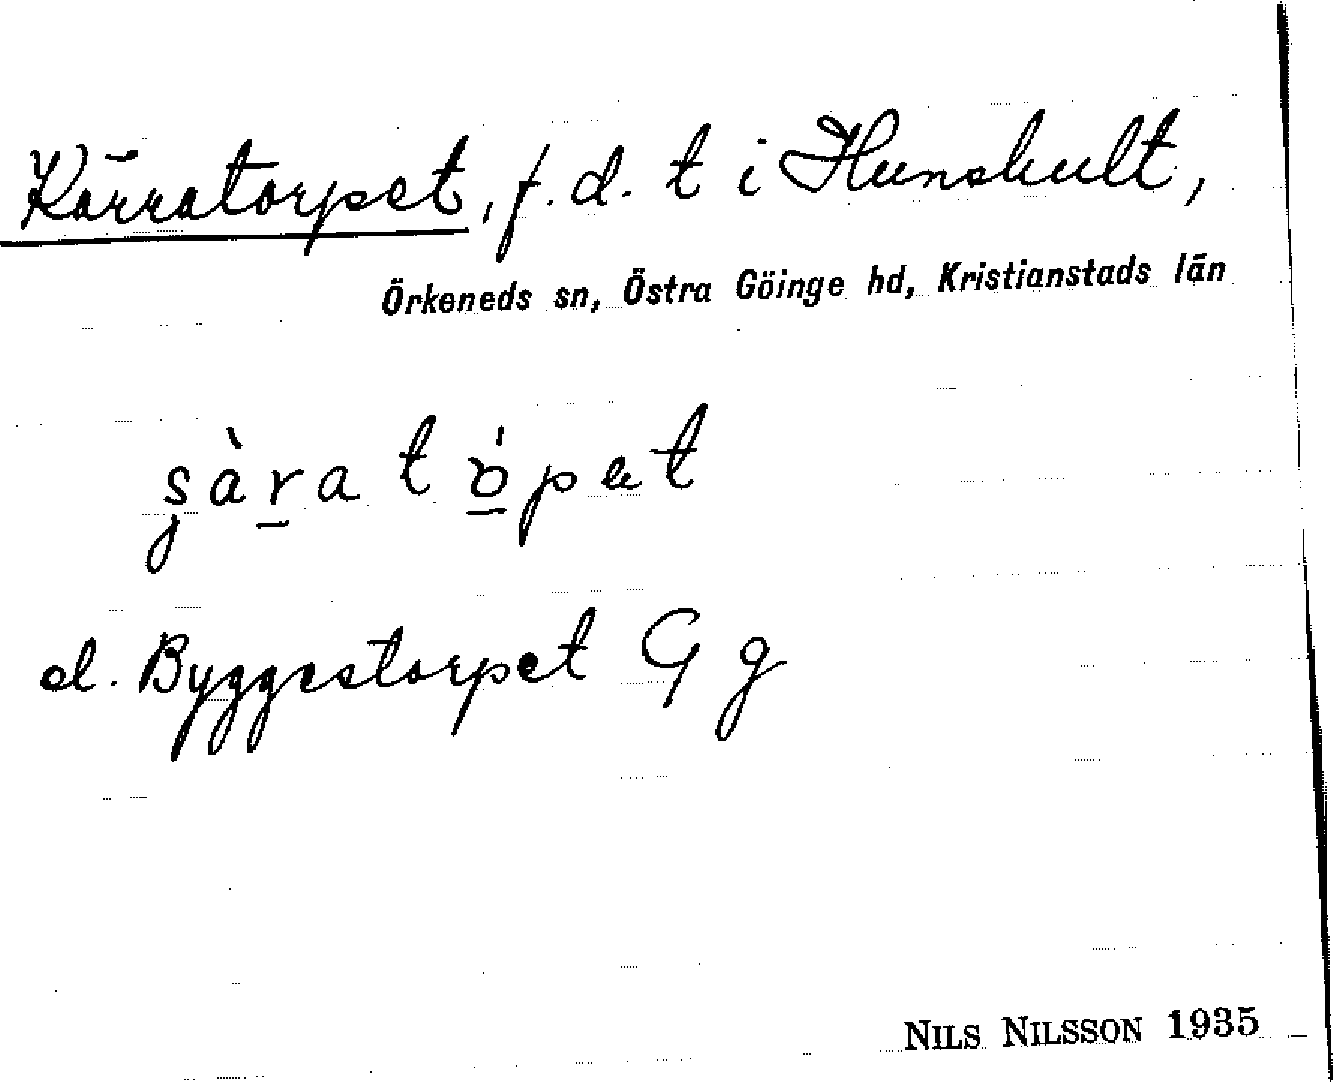 Kärratorpet, f.d. t i Hunshult,
Örkeneds sn, Östra Göinge hd, Kristianstads län
d. Byggestorpet G g
NILS NILSSON 1935